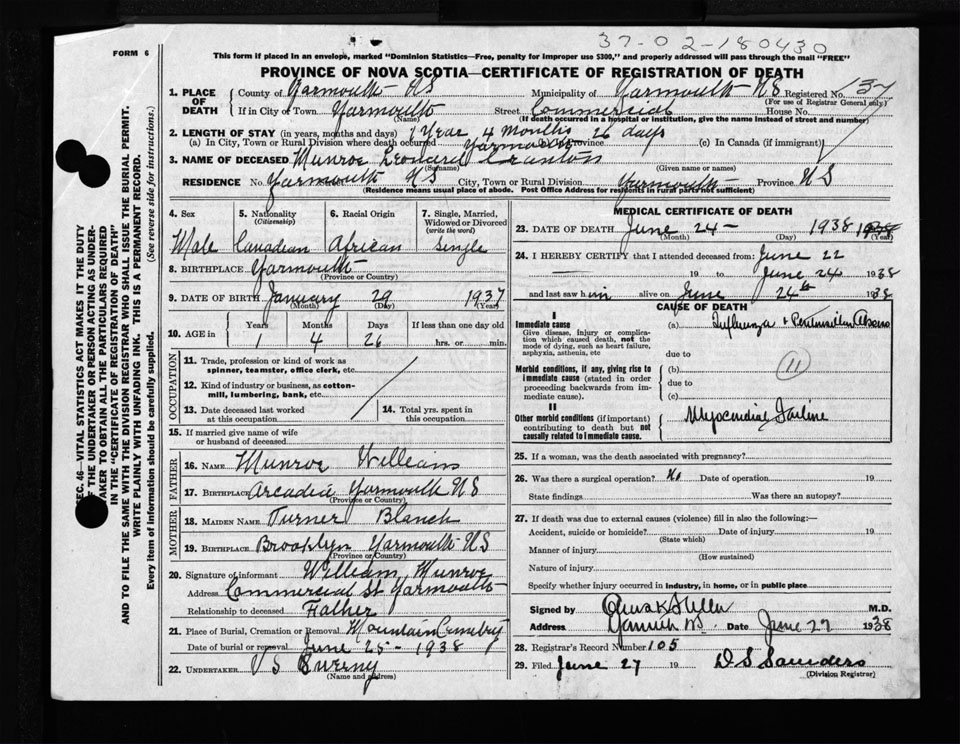 37-02-180430
FORM 6
This form if placed in an envelope, marked "Dominion Statistics—Free, penalty for improper use $300," and properly addressed will pass through the mail "FREE"
PROVINCE OF NOVA SCOTIA—CERTIFICATE OF REGISTRATION OF DEATH
SEC. 46—VITAL STATISTICS ACT MAKES IT THE DUTY
OF THE UNDERTAKER OR PERSON ACTING AS UNDER-
TAKER TO OBTAIN ALL THE PARTICULARS REQUIRED
IN THE "CERTIFICATE OF REGISTRATION OF DEATH"
AND TO FILE THE SAME WITH THE DIVISION REGISTRAR WHO SHALL ISSUE THE BURIAL PERMIT.
WRITE PLAINLY WITH UNFADING INK. THIS IS A PERMANENT RECORD.
Every item of information should be carefully supplied. (See reverse side for instructions.)
1. PLACE OF DEATH County of Yarmouth NS Municipality of Yarmouth NS Registered No. 37
(For use of Registrar General only.)
If in City or Town Yarmouth Street Commercial House No.
(Name) (If death occurred in a hospital or institution, give the name instead of street and number)
2. LENGTH OF STAY (in years, months and days) 1 Year 4 Months 26 days
(a) In City, Town or Rural Division where death occurred Yarmouth Province (c) In Canada (if immigrant)
3. NAME OF DECEASED Munroe Leonard Cranton
(Surname) (Given name or names)
RESIDENCE No. Yarmouth NS City, Town or Rural Division Yarmouth Province NS
(Residence means usual place of abode. Post Office Address for residents in rural parts not sufficient)
4. Sex 5. Nationality (Citizenship) 6. Racial Origin 7. Single, Married, Widowed or Divorced (write the word)
Male Canadian African Single
8. BIRTHPLACE Yarmouth
(Province or Country)
9. DATE OF BIRTH January 29 1937
(Month) (Day) (Year)
10. AGE in Years Months Days If less than one day old
1 4 26 hrs. or min.
OCCUPATION
11. Trade, profession or kind of work as spinner, teamster, office clerk, etc.
12. Kind of industry or business, as cotton-mill, lumbering, bank, etc.
13. Date deceased last worked at this occupation
14. Total yrs. spent in this occupation
15. If married give name of wife or husband of deceased
FATHER
16. NAME Munroe William
17. BIRTHPLACE Arcadia Yarmouth NS
(Province or Country)
MOTHER
18. MAIDEN NAME Turner Blanch
19. BIRTHPLACE Brooklyn Yarmouth NS
(Province or Country)
20. Signature of informant William Munroe
Address Commercial St Yarmouth
Relationship to deceased Father
21. Place of Burial, Cremation or Removal Mountain Cemetery
Date of burial or removal June 25 - 1938
22. UNDERTAKER V S
(Name and address)
MEDICAL CERTIFICATE OF DEATH
23. DATE OF DEATH June 24 - 1938 1938
(Month) (Day) (Year)
24. I HEREBY CERTIFY that I attended deceased from: June 22
19 to June 24 1938
and last saw him alive on June 24th 1938
CAUSE OF DEATH
I
Immediate cause
Give disease, injury or complication which caused death, not the mode of dying, such as heart failure, asphyxia, asthenia, etc
(a) Influenza +
due to
Morbid conditions, if any, giving rise to immediate cause (stated in order proceeding backwards from immediate cause).
(b)
11
due to
(c)
II
Other morbid conditions (if important) contributing to death but not causally related to immediate cause.
Failure
25. If a woman, was the death associated with pregnancy?
26. Was there a surgical operation? No Date of operation 19
State findings Was there an autopsy?
27. If death was due to external causes (violence) fill in also the following:—
Accident, suicide or homicide? Date of injury 19
(State which)
Manner of injury
(How sustained)
Nature of injury
Specify whether injury occurred in industry, in home, or in public place
Signed by M.D.
Address Date June 27 1938
28. Registrar's Record Number 105
29. Filed June 27 19 D S Saunders
(Division Registrar)